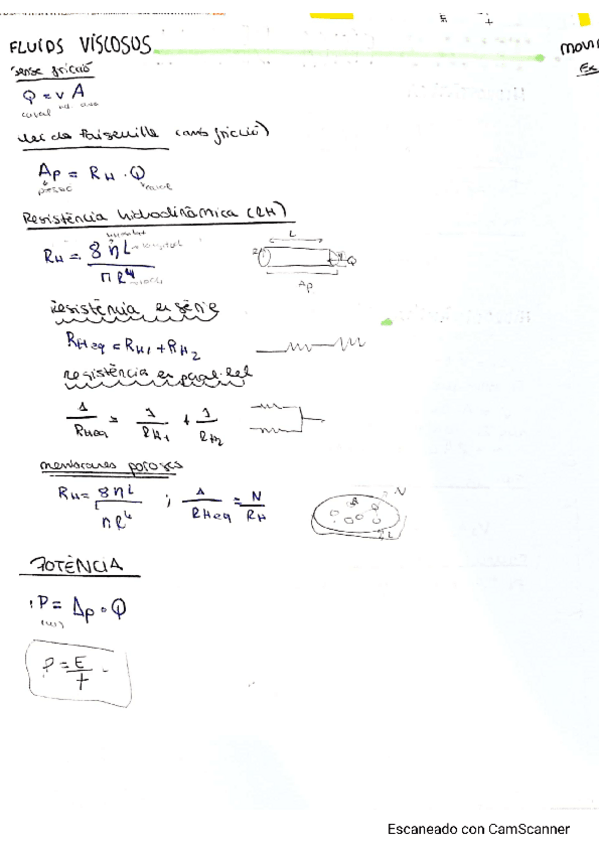 FLUIDS VISCOSOS
sense fricció
Q = v A
cabal
Llei de Poiseuille (amb fricció)
Δp = RH · Q
pressió cabal
Resistència hidrodinàmica (RH)
RH = 8 η L / π R⁴
L
R
Q
Δp
Resistència en sèrie
RHeq = RH1 + RH2
resistència en paral·lel
1/RHeq = 1/RH1 + 1/RH2
membranes poroses
RH = 8 η L / π R⁴ ; 1/RHeq = N/RH
N
L
POTÈNCIA
P = Δp · Q
(W)
P = E/t
Escaneado con CamScanner